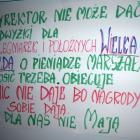 YREKTOR NIE MOŻE DAĆ
DWYŻKI DLA
LĘGNIAREK I POŁOŻNYCH WIELGA
DA O PIENIĄDZE MARSZAŁ
OŚĆ TRZEBA. OBIECUJE
NIC NIE DAJE BO NAGRODY
SOBIE DAJĄ
DLA NAS NIE MAJĄ